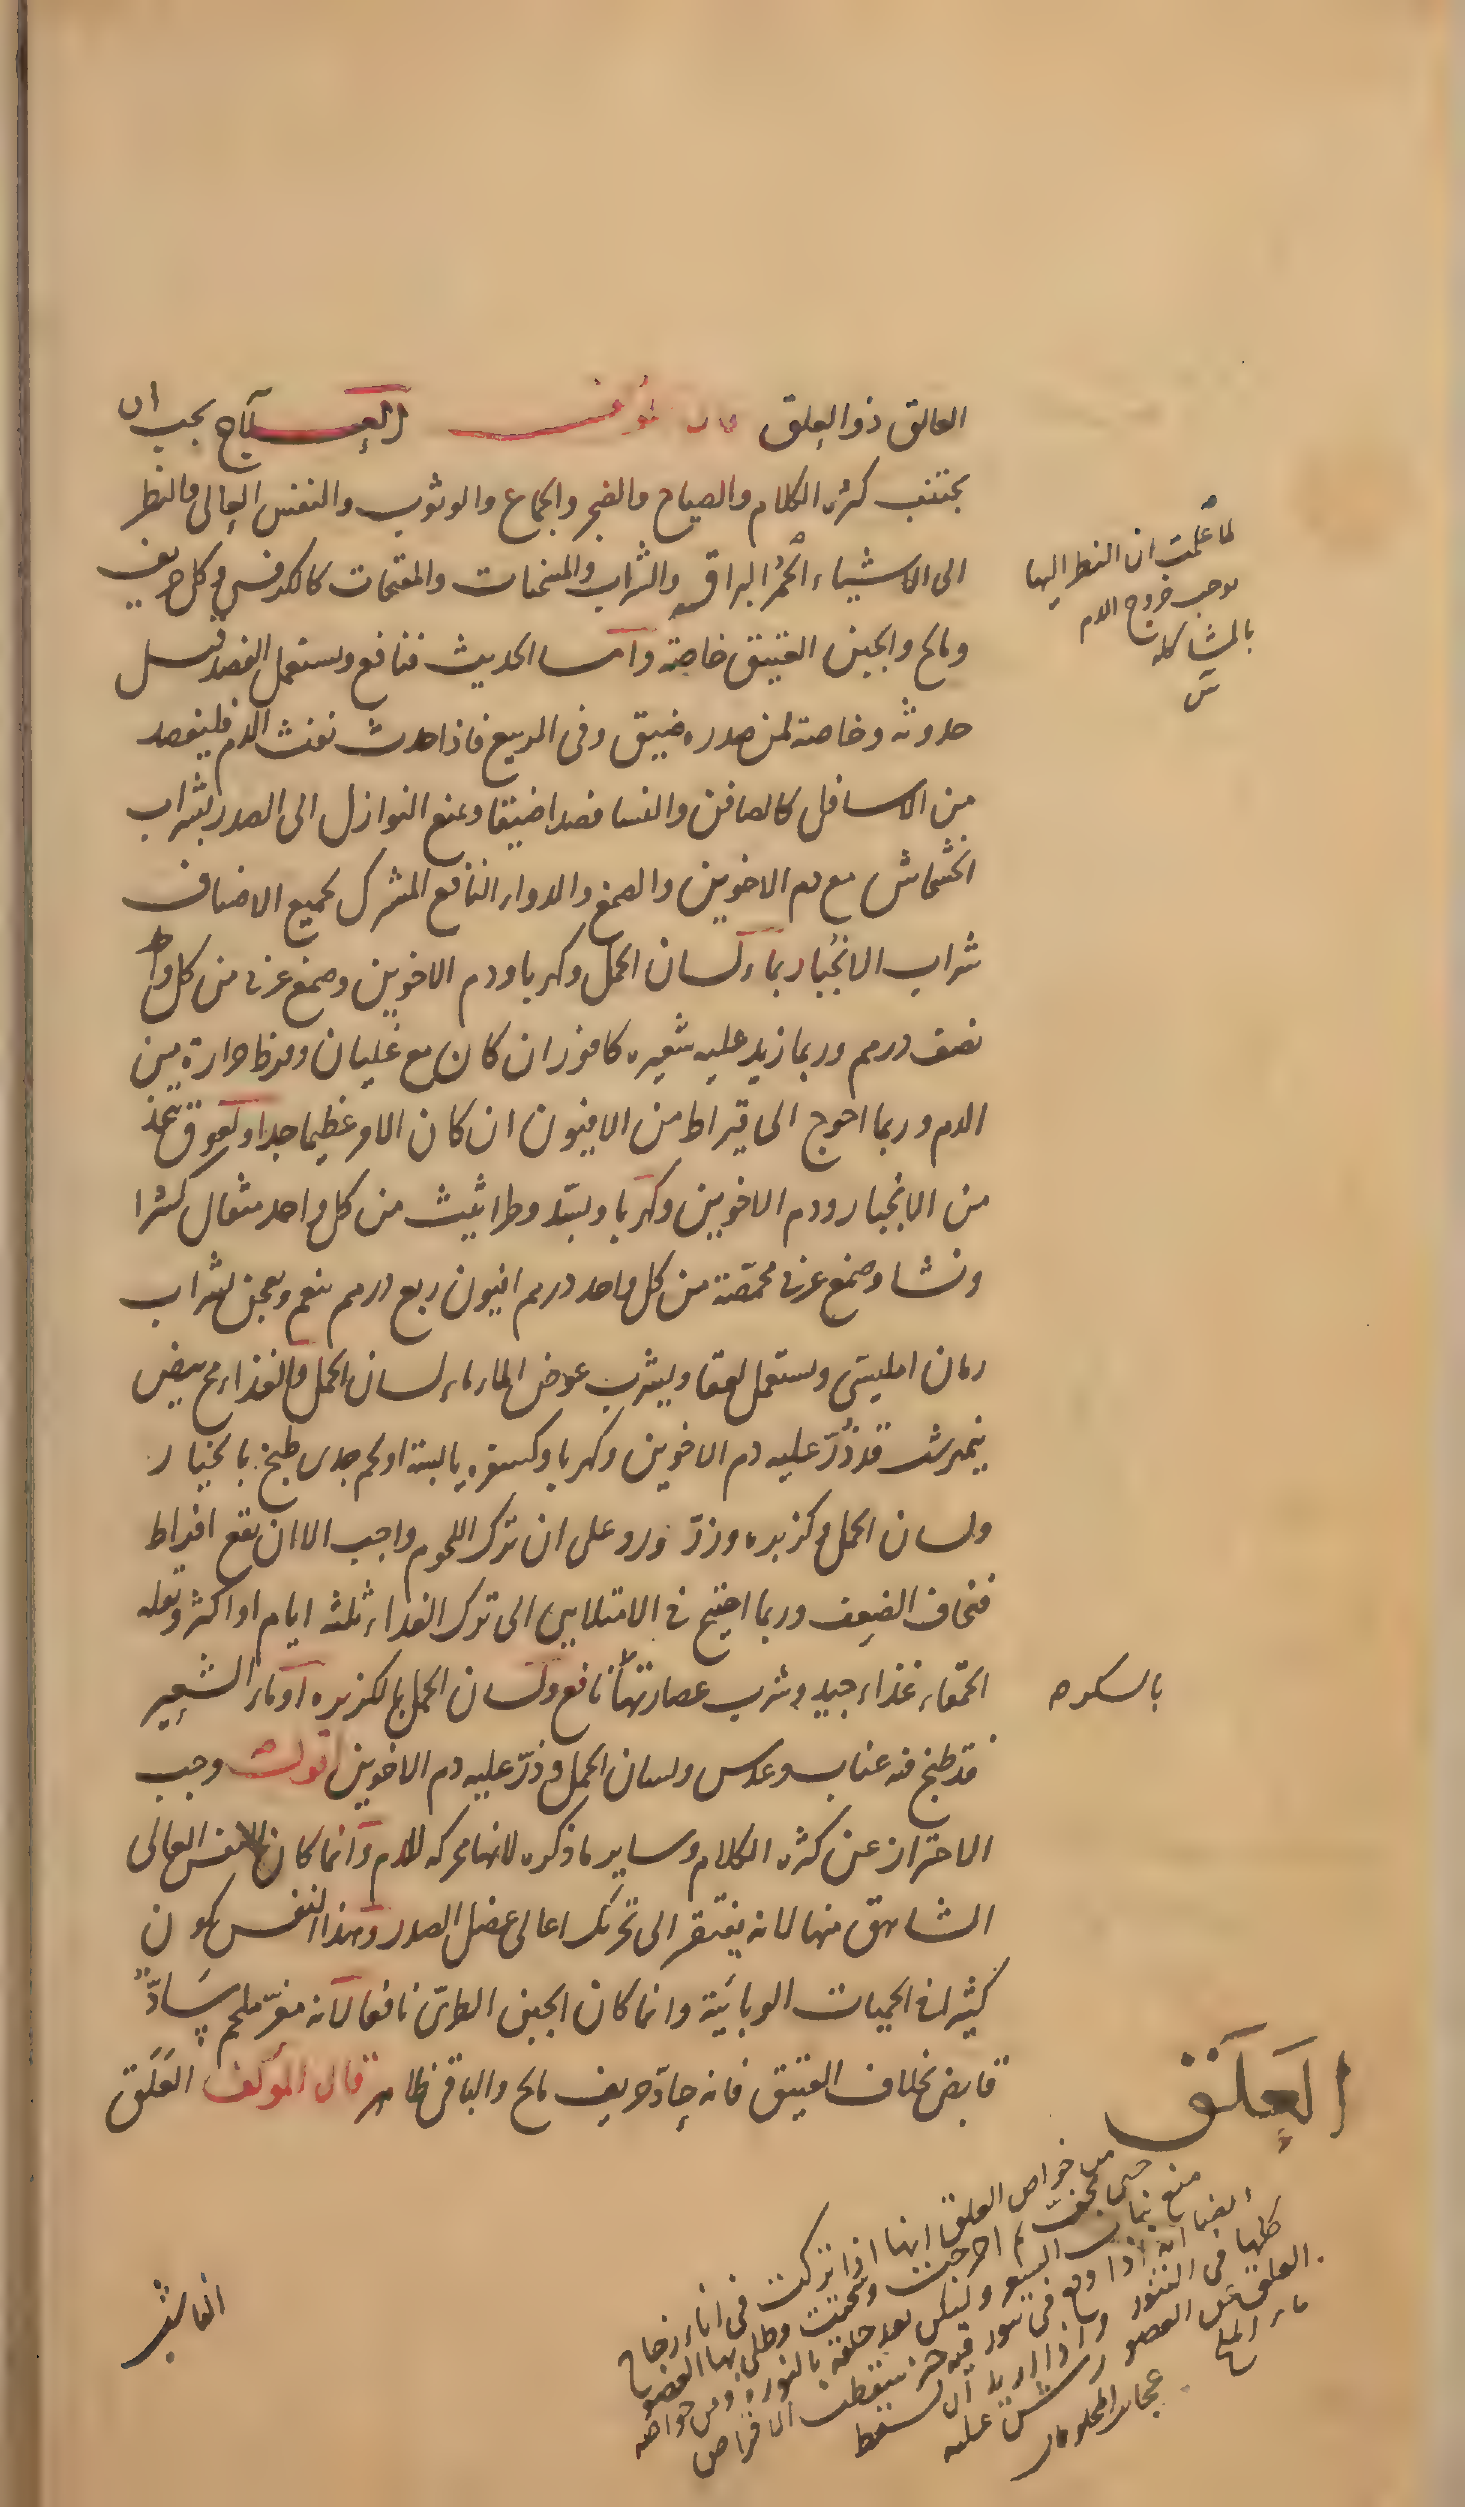 العالق ذو العلق قال المؤلف العلاج يجب ان
يجتنب كثرة الكلام والصياح والضجر والجماع والوثوب والنفس العالى والنظر
الى الاشياء الحُمْر البراقه والشراب والمسخنات والمفتحات كالكرفس وكل حريف
ومالح والجبن العتيق خاصة واما الحديث فنافع ويستعمل الفصد قبل
حدوثه وخاصة لمن صدره ضيق وفى الربيع فاذا حدث نفث الدم فليفصد
من الاسافل كالصافن والنسا فصدا ضيقا ويمنع النوازل الى الصدر بشراب
الخشخاش مع دم الاخوين والصمغ والدواء النافع المشترك لجميع الاصناف
شراب الانجُبار بماء لسان الحمل وكهربا ودم الاخوين وصمغ عربى من كل واحد
نصف درهم وربما زيد عليه شعيره كافور ان كان مع غليان وفرط حرارة من
الدم وربما احوج الى قيراط من الافيون ان كان الامر عظيما جدا ولعوق يتخذ
من الانجبار ودم الاخوين وكهربا وبسّد وطراثيث من كل واحد مثقال كثيرا
ونشا وصمغ عربى محمصّة من كل واحد درهم افيون ربع درهم ينعم ويعجن بشراب
رمان امليسى ويستعمل لعقا ويشرب عوض الماء ماء لسان الحمل والغذاء مح بيض
نيمرشت قد ذُرّ عليه دم الاخوين وكهربا وكسفره يابسة او لحم جدى طبخ بالخيار
ولسان الحمل وكزبره وزرّ ورد على ان ترك اللحوم واجب الا ان يقع افراط
فيخاف الضعف وربما احتيج فى الامتلايى الى ترك الغداء ثلثه ايام او اكثر وبقله
الحمقاء غذاء جيد وشرب عصارتها نافع ولسان الحمل بالكزبره او ماء الشعير
قد طبخ فيه عناب وعدس ولسان الحمل وذرّ عليه دم الاخوين اقول وجب
الاحتراز عن كثرة الكلام وساير ما ذكره لانها محركه للدم وانما كان النفس العالى
الشاهق منها لانه يفتقر الى تحريك اعالى عضل الصدر وهذا النفس يكون
كثيرا فى الحميات الوبائية وانما كان الجبن الطرىّ نافعا لانه مغرّ ملحم سَادّ
قابض بخلاف العتيق فانه حادّ حريف مالح والباقى ظاهر قال المؤلف العَلَق
لما علمت ان النظر اليها
يوجب خروج الدم
بالمشاكله
ش
بالسكوحه
العَلَق
من خواص العلق انها اذا تركت فى اناء زجاج
حتى تجفّ ثم اخرجت وسحقت وطلى بها العضو
منع نبات الشعر وليكن بعد حلقه بالنوره ومن خواصه
ايضا انه اذا وقع فى تنور فيه خبز سقطت الاقراص
كلها فى التنور واذا اريد ان يسقط
العلق عن العضو رش عليه
ماء الملح عجائب المخلوقات
العاشر